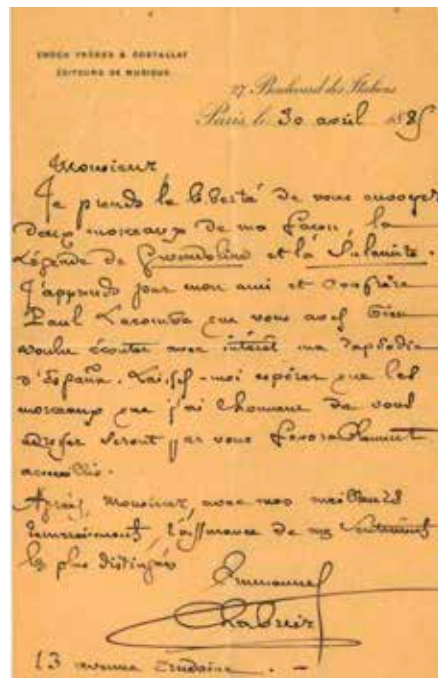 ENOCH FRÈRES & COSTALLAT
ÉDITEURS DE MUSIQUE
27 Boulevard des Italiens
Paris, le 30 avril 1885
Monsieur,
Je prends la liberté de vous envoyer
deux morceaux de ma façon, la
Légende de Gwendoline et la Sulamite.
J'apprends par mon ami et confrère
Paul Lacombe que vous avez bien
voulu écouter avec intérêt ma rapsodie
d'España. Laissez-moi espérer que les
morceaux que j'ai l'honneur de vous
adresser seront par vous favorablement
accueillis.
Agréez, Monsieur, avec mes meilleurs
remerciements, l'assurance de mes sentiments
les plus distingués
Emmanuel
Chabrier
13 avenue Trudaine. -